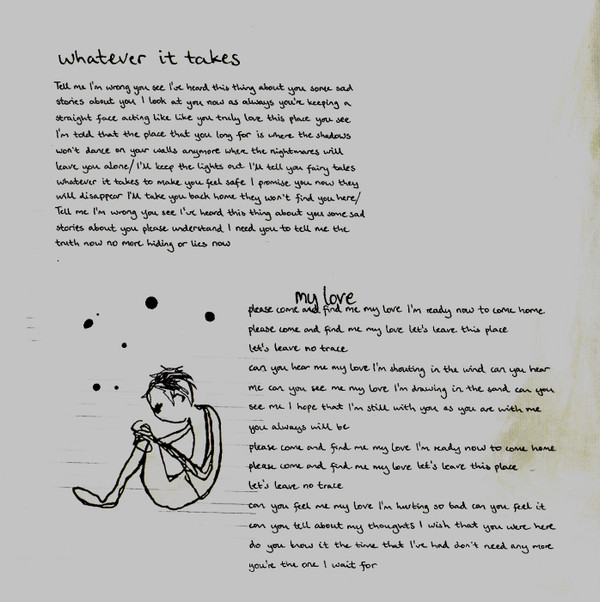 whatever it takes
Tell me I'm wrong you see I've heard this thing about you some sad
stories about you I look at you now as always you're keeping a
straight face acting like like you truly love this place you see
I'm told that the place that you long for is where the shadows
won't dance on your walls anymore where the nightmares will
leave you alone/ I'll keep the lights out I'll tell you fairy tales
whatever it takes to make you feel safe I promise you now they
will disappear I'll take you back home they won't find you here/
Tell me I'm wrong you see I've heard this thing about you some sad
stories about you please understand I need you to tell me the
truth now no more hiding or lies now
my love
please come and find me my love I'm ready now to come home
please come and find me my love let's leave this place
let's leave no trace
can you hear me my love I'm shouting in the wind can you hear
me can you see me my love I'm drawing in the sand can you
see me I hope that I'm still with you as you are with me
you always will be
please come and find me my love I'm ready now to come home
please come and find me my love let's leave this place
let's leave no trace
can you feel me my love I'm hurting so bad can you feel it
can you tell about my thoughts I wish that you were here
do you know it the time that I've had don't need any more
you're the one I wait for